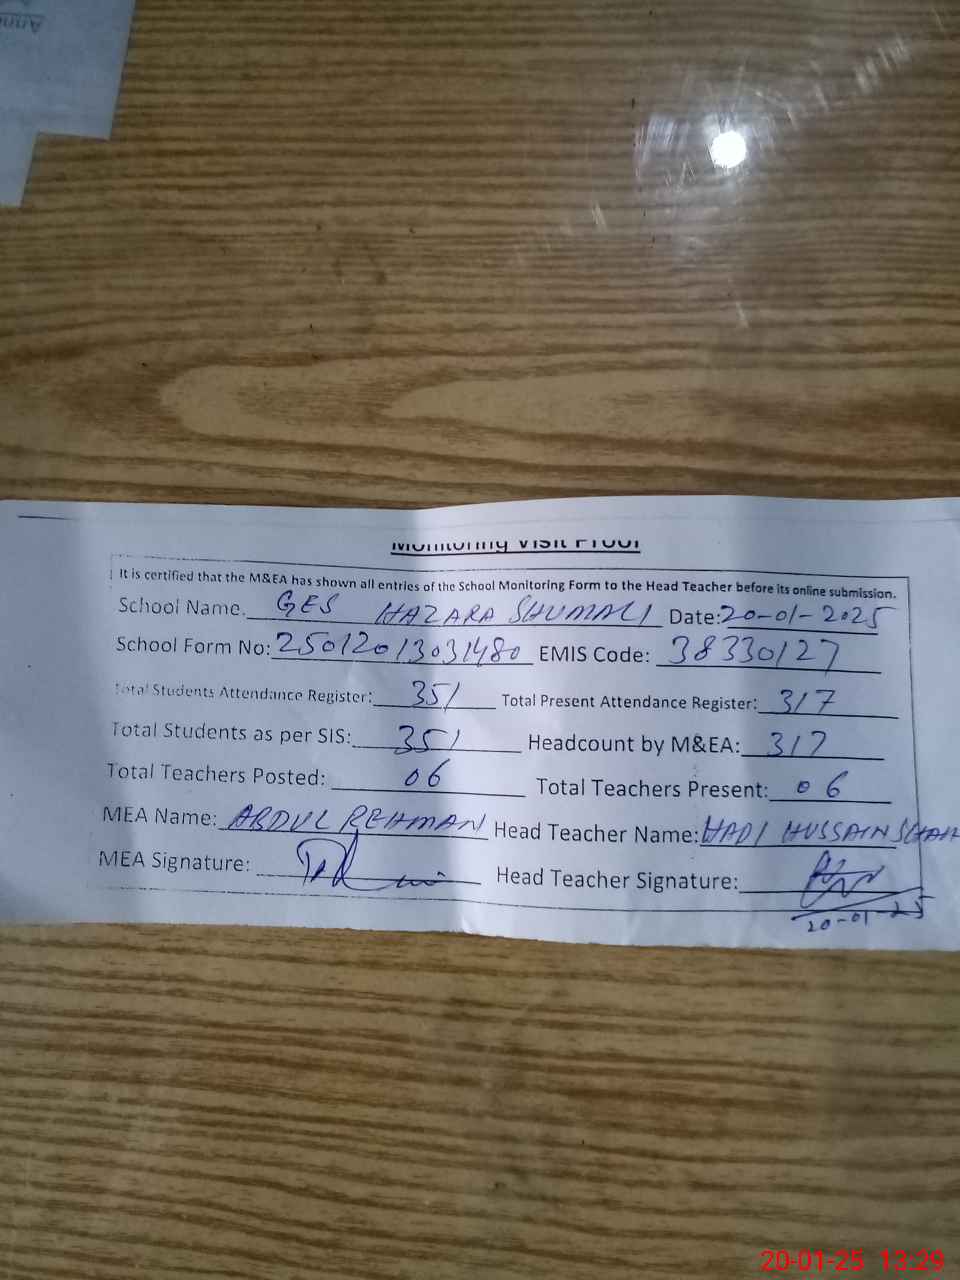 Monitoring Visit Proof
It is certified that the M&EA has shown all entries of the School Monitoring Form to the Head Teacher before its online submission.
School Name. GES HAZARA SHUMALI Date: 20-01-2025
School Form No: 25012013031480 EMIS Code: 38330127
Total Students Attendance Register: 351 Total Present Attendance Register: 317
Total Students as per SIS: 351 Headcount by M&EA: 317
Total Teachers Posted: 06 Total Teachers Present: 06
MEA Name: ABDUL REHMAN Head Teacher Name: HADI HUSSAIN SHAH
MEA Signature: Head Teacher Signature:
20-01-25
20-01-25 13:29